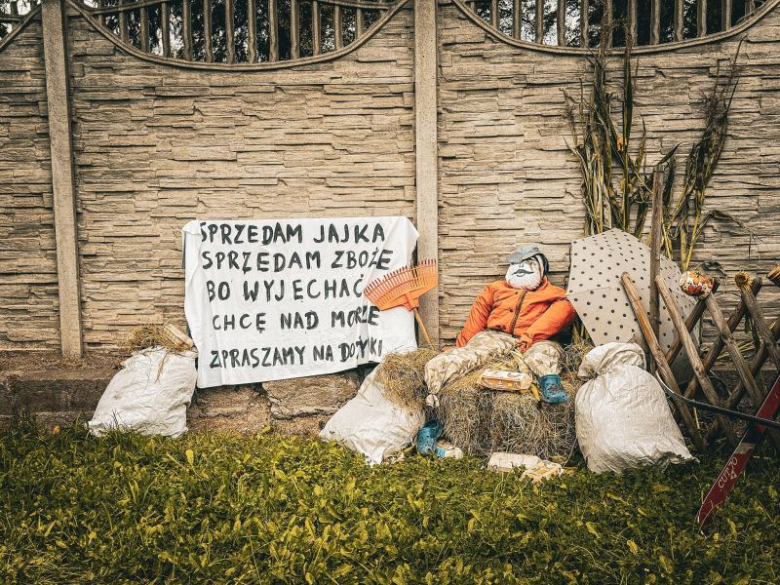 SPRZEDAM JAJKA
SPRZEDAM ZBOŻE
BO WYJECHAĆ
CHCĘ NAD MORZE
ZPRASZAMY NA DOŻYNKI